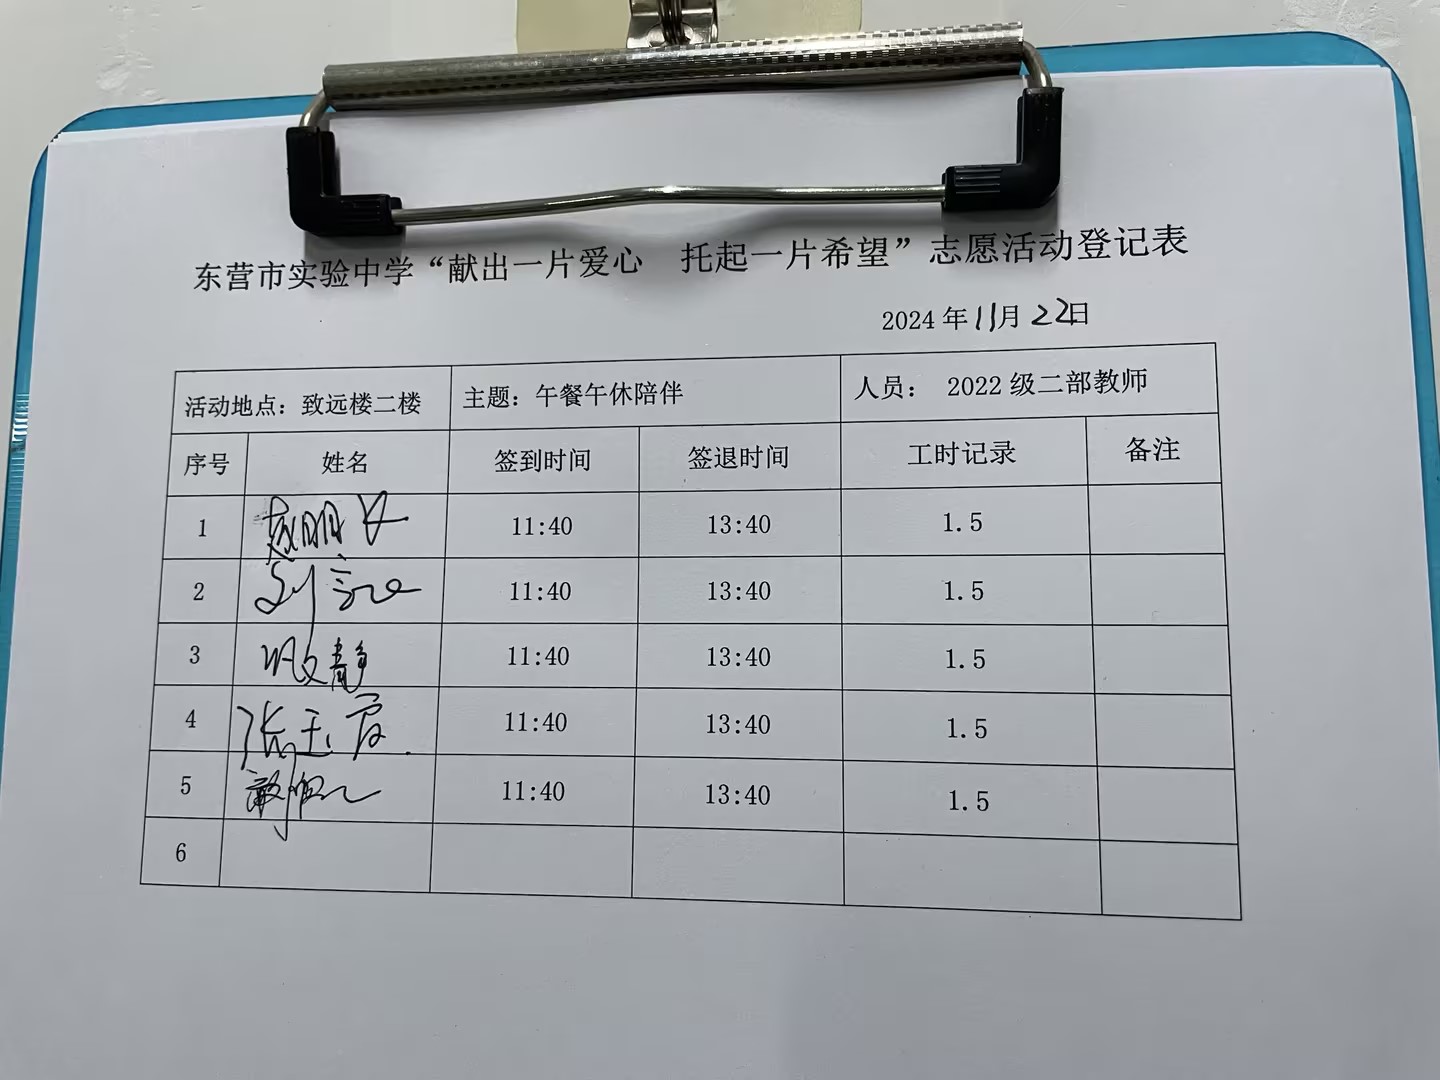 东营市实验中学“献出一片爱心 托起一片希望”志愿活动登记表
2024年11月22日
活动地点：致远楼二楼 主题：午餐午休陪伴 人员： 2022级二部教师
序号 姓名 签到时间 签退时间 工时记录 备注
1 11:40 13:40 1.5
2 11:40 13:40 1.5
3 11:40 13:40 1.5
4 张玉霞 11:40 13:40 1.5
5 11:40 13:40 1.5
6